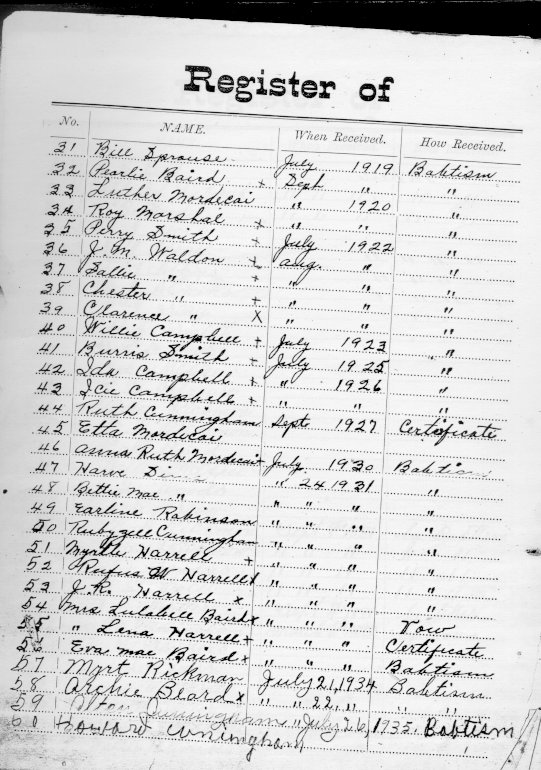 Register of
No. NAME. When Received. How Received.
31 Bill Sprouse July 1919 Babtism
32 Pearlie Baird + Sept " "
33 Luther Mordecai " 1920 "
34 Roy Marshal + " " "
35 Perry Smith + July 1922 "
36 J. M. Waldon + Aug. " "
37 Sallie " + " " "
38 Chester " + " " "
39 Clarence " X " " "
40 Willie Campbell + July 1923 "
41 Burris Smith + July 1925 "
42 Ida Campbell + " 1926 "
43 Icie Campbell + " " "
44 Ruth Cunningham Sept 1927 Certificate
45 Etta Mordecai
46 Anna Ruth Mordecai + July 1930 Babtism
47 Harve " 24 1931 "
48 Bettie Mae " " " " "
49 Earline Rabinson " " " "
50 Rubyzell Cunningham " " " "
51 Myrtle Harrell + " " " "
52 Rufus W Harrell x " " " "
53 J. R. Harrell x " " " "
54 Mrs Lulabell Baird x " " " Vow
55 " Lena Harrell + " " " Certificate
56 Eva Mae Baird x " " " Babtism
57 Myrt Rickman July 21, 1934 Babtism
58 Archie Beard x " " 22, " "
59 Cunningham " July 26, 1935. Babtism
60 Howard Cuningham